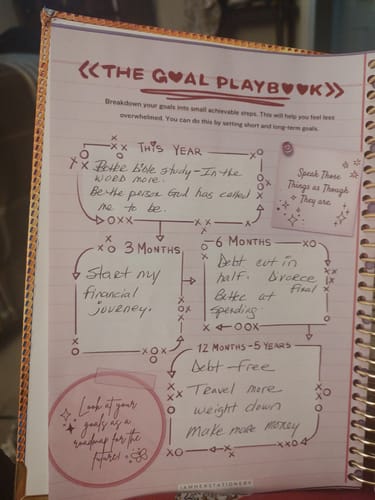 THE GOAL PLAYBOOK
Breakdown your goals into small achievable steps. This will help you feel less
overwhelmed. You can do this by setting short and long-term goals.
THIS YEAR
Better bible study - In the
WORD more.
Be the person God has called
me to be.
Speak Those
Things as Though
They are
3 MONTHS
Start my
financial
journey.
6 MONTHS
Debt cut in
half. Divorce
final
Better at
spending
12 MONTHS - 5 YEARS
Debt-free
Travel more
weight down
Make more money
Look at your
goals as a
roadmap for the
future!
IAMHERSTATIONERY